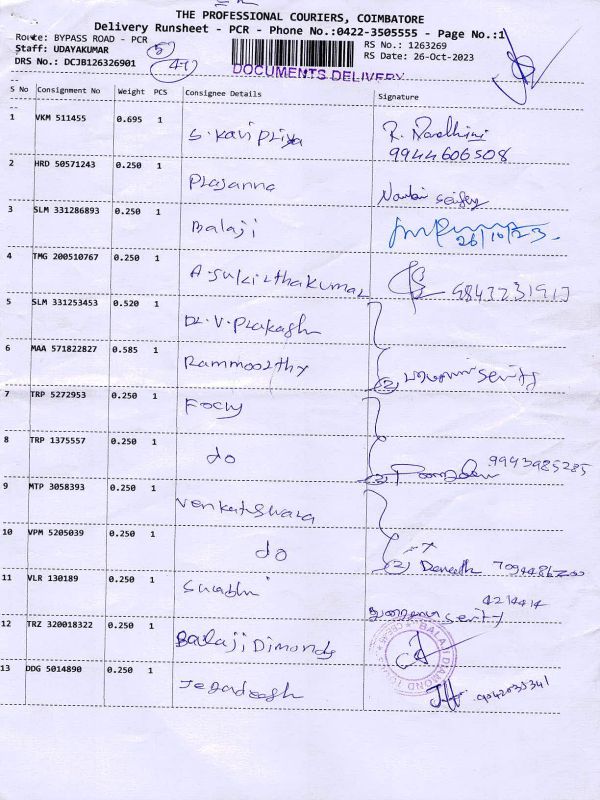 THE PROFESSIONAL COURIERS, COIMBATORE
Delivery Runsheet - PCR - Phone No.:0422-3505555 - Page No.:1
Route: BYPASS ROAD - PCR RS No.: 1263269
Staff: UDAYAKUMAR RS Date: 26-Oct-2023
DRS No.: DCJB126326901 DOCUMENTS DELIVERY
S No Consignment No Weight PCS Consignee Details Signature
1 VKM 511455 0.695 1 S. Kavi Priya
9944606508
2 HRD 50571243 0.250 1 Prajanna
3 SLM 331286893 0.250 1 Balaji 26/10/23
4 TMG 200510767 0.250 1 A. Sukirthakumar
5 SLM 331253453 0.520 1 Dr. V. Prakash
6 MAA 571822827 0.585 1 Rammoorthy (2)
7 TRP 5272953 0.250 1
8 TRP 1375557 0.250 1 do (2) 9943985285
9 MTP 3058393 0.250 1 Venkateshwara
10 VPM 5205039 0.250 1 do (2)
11 VLR 130189 0.250 1
12 TRZ 320018322 0.250 1 Balaji Dimonds
13 DDG 5014890 0.250 1 Jegadeesh